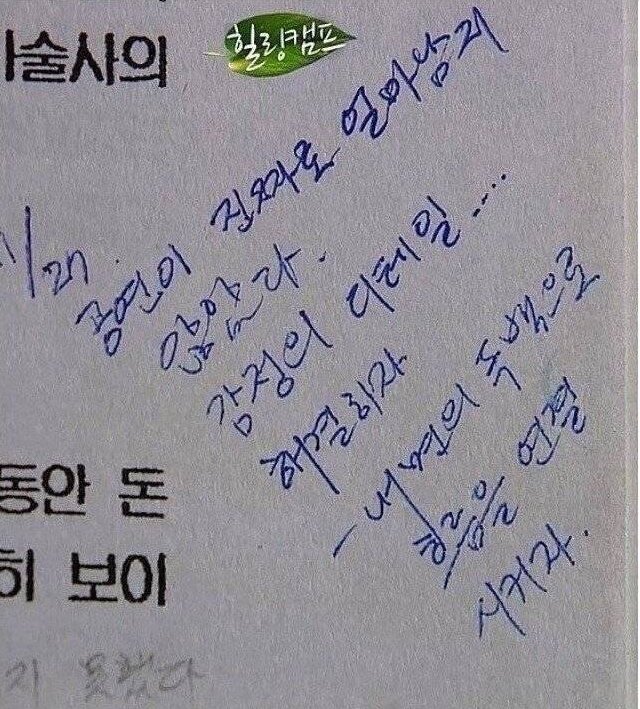 힐링캠프
기술사의
11/27.
공연이 진짜로 얼마남지
않았다.
감정의 디테일....
해결하자
- 내면의 독백으로
흐름을 연결
시키자.
동안 돈
히 보이
지 못했다